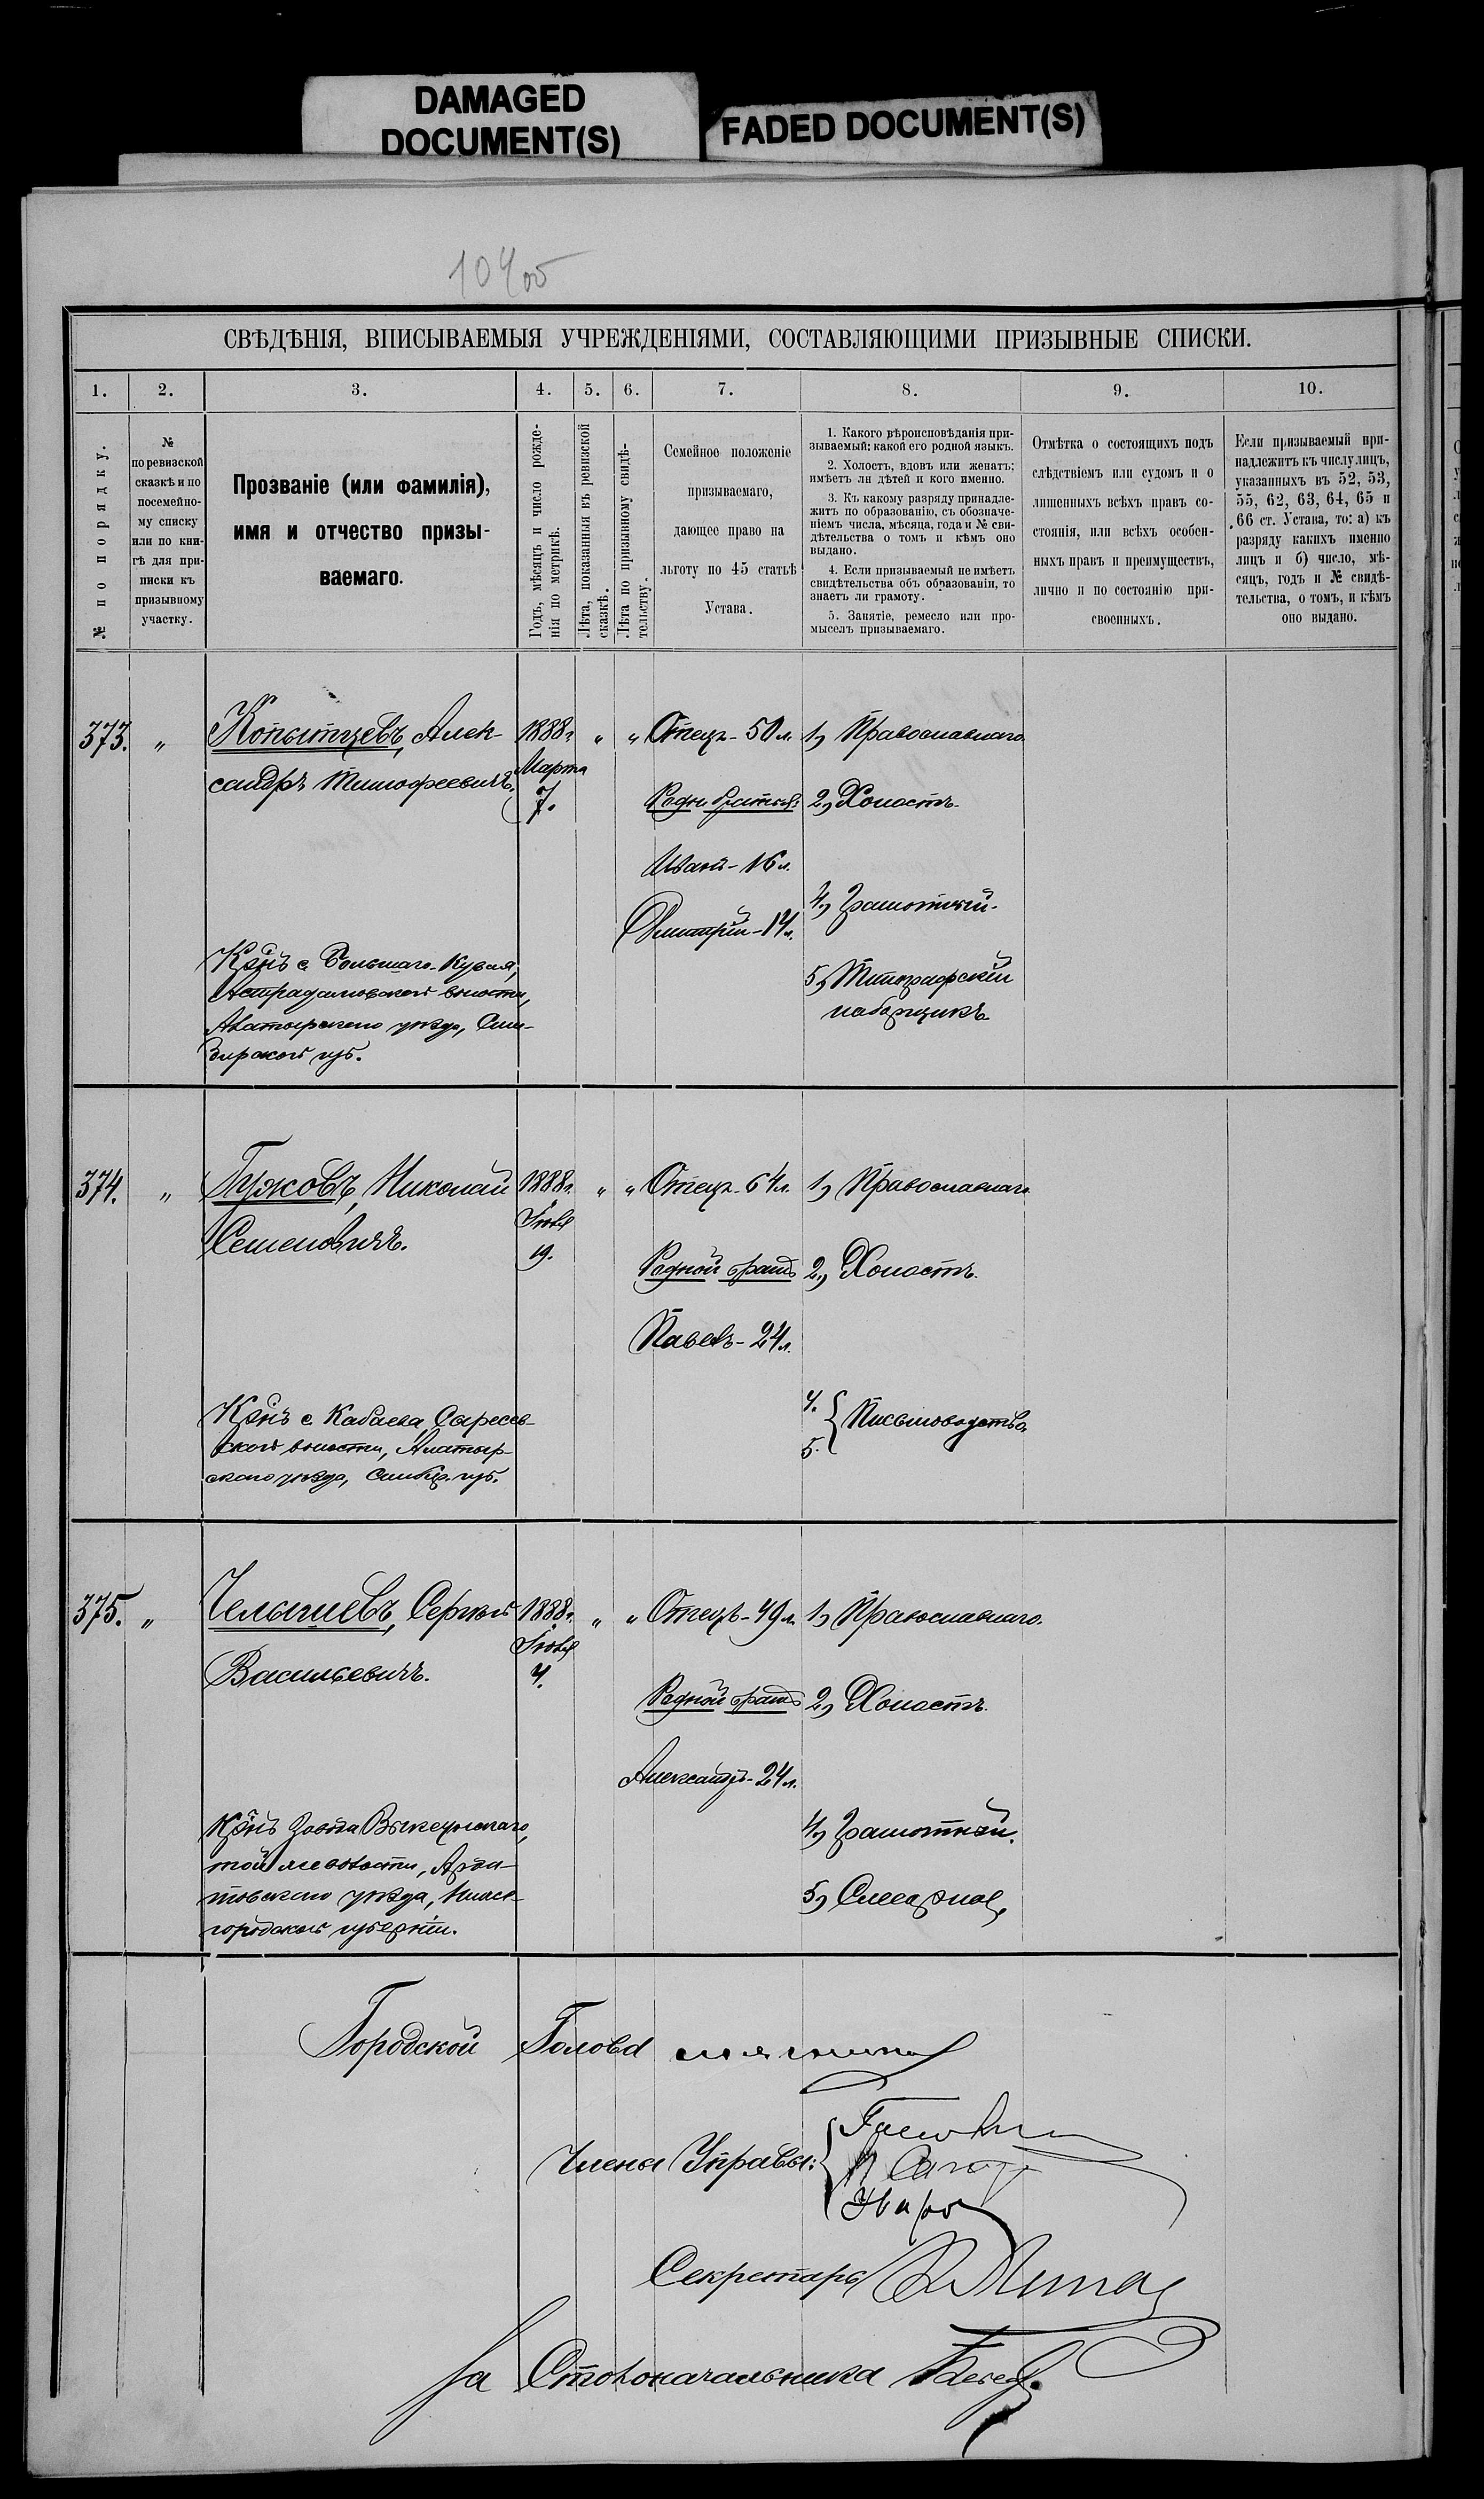 DAMAGED
DOCUMENT(S)
FADED DOCUMENT(S)
СВѢДѢНІЯ, ВПИСЫВАЕМЫЯ УЧРЕЖДЕНІЯМИ, СОСТАВЛЯЮЩИМИ ПРИЗЫВНЫЕ СПИСКИ.
1. 2. 3. 4. 5. 6. 7. 8. 9. 10.
№ по порядку.
№
по ревизской
сказкѣ и по
посемейно-
му списку
или по кни-
гѣ для при-
писки къ
призывному
участку.
Прозваніе (или фамилія),
имя и отчество призы-
ваемаго.
Годъ, мѣсяцъ и число рожде-
нія по метрикѣ.
Лѣта, показанныя въ ревизской
сказкѣ.
Лѣта по призывному свидѣ-
тельству.
Семейное положеніе
призываемаго,
дающее право на
льготу по 45 статьѣ
Устава.
1. Какого вѣроисповѣданія при-
зываемый: какой его родной языкъ.
2. Холостъ, вдовъ или женатъ;
имѣетъ ли дѣтей и кого именно.
3. Къ какому разряду принадле-
житъ по образованію, съ обозначе-
ніемъ числа, мѣсяца, года и № сви-
дѣтельства о томъ и кѣмъ оно
выдано.
4. Если призываемый не имѣетъ
свидѣтельства объ образованіи, то
знаетъ ли грамоту.
5. Занятіе, ремесло или про-
мыселъ призываемаго.
Отмѣтка о состоящихъ подъ
слѣдствіемъ или судомъ и о
лишенныхъ всѣхъ правъ со-
стоянія, или всѣхъ особен-
ныхъ правъ и преимуществъ,
лично и по состоянію при-
своенныхъ.
Если призываемый при-
надлежитъ къ числу лицъ,
указанныхъ въ 52, 53,
55, 62, 63, 64, 65 и
66 ст. Устава, то: а) къ
разряду какихъ именно
лицъ и б) число, мѣ-
сяцъ, годъ и № свидѣ-
тельства, о томъ, и кѣмъ
оно выдано.
373. " Копытцевъ, Алек-
сандръ Тимофеевичъ.
1888 г.
Марта
7.
" "
Отецъ - 50 л.
Родн. братья:
Иванъ - 16 л.
Дмитрій - 14 л.
1) Православнаго.
2) Холостъ.
4) Грамотный.
5) Типографскій
наборщикъ
Кр-нъ с. Большаго-Кувая,
Астрадамовской волости,
Алатырскаго уѣзда, Сим-
бирской губ.
374. " Гужовъ, Николай
Семеновичъ.
1888 г.
Іюля
19.
" "
Отецъ - 64 л.
Родной братъ
Павелъ - 24 л.
1) Православнаго
2) Холостъ.
4.
5. { Письмоводство.
Кр-нъ с. Кабаева, Сыресев-
ской волости, Алатыр-
скаго уѣзда, Симбир. губ.
375. " Челышевъ, Сергѣй
Васильевичъ.
1888 г.
Іюля
4.
" "
Отецъ - 49 л.
Родной братъ
Александръ - 24 л.
1) Православнаго.
2) Холостъ.
4) Грамотный.
5) Слесарное
Кр-нъ завода Выксунскаго,
той же волости, Арда-
товскаго уѣзда, Ниже-
городской губерніи.
Городской Голова
Члены Управы:
Секретарь
За Столоначальника